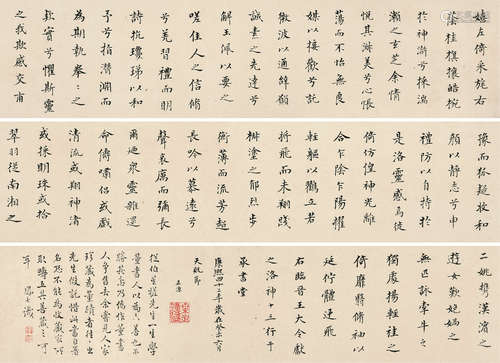 嬉左倚采施右
蔭桂旗攘皓椀
於神滸兮採湍
瀨之玄芝余情
悅其淑美兮心振
蕩而不怡無良
媒以接歡兮託
微波以通辭願
誠素之先達兮
解玉佩以要之
嗟佳人之信脩
兮羌習禮而明
詩抗瓊珶以和
予兮指潛淵而
為期執拳々之
欵實兮懼斯靈
之我欺感交甫
豫而狐疑收和
顏以靜志兮申
禮防以自持於
是洛靈感焉徙
倚仿偟神光離
合乍陰乍陽擢
輕軀以鶴立若
將飛而未翔踐
椒塗之郁烈步
衡薄而流芳超
長吟以慕遠兮
聲哀厲而彌長
爾迺衆靈雜遝
命儔嘯侶或戲
清流或翔神渚
或採明珠或拾
翠羽從南湘之
二姚攜漢濱之
遊女歎匏媧之
無匹詠牽牛之
獨處揚輕袿之
倚靡翳脩袖以
延佇體迅飛
右臨晉王大令獻
之洛神十三行于
承書堂
康熙四十二年歲在癸未六月
天貺節
從伯星璇先生一生學